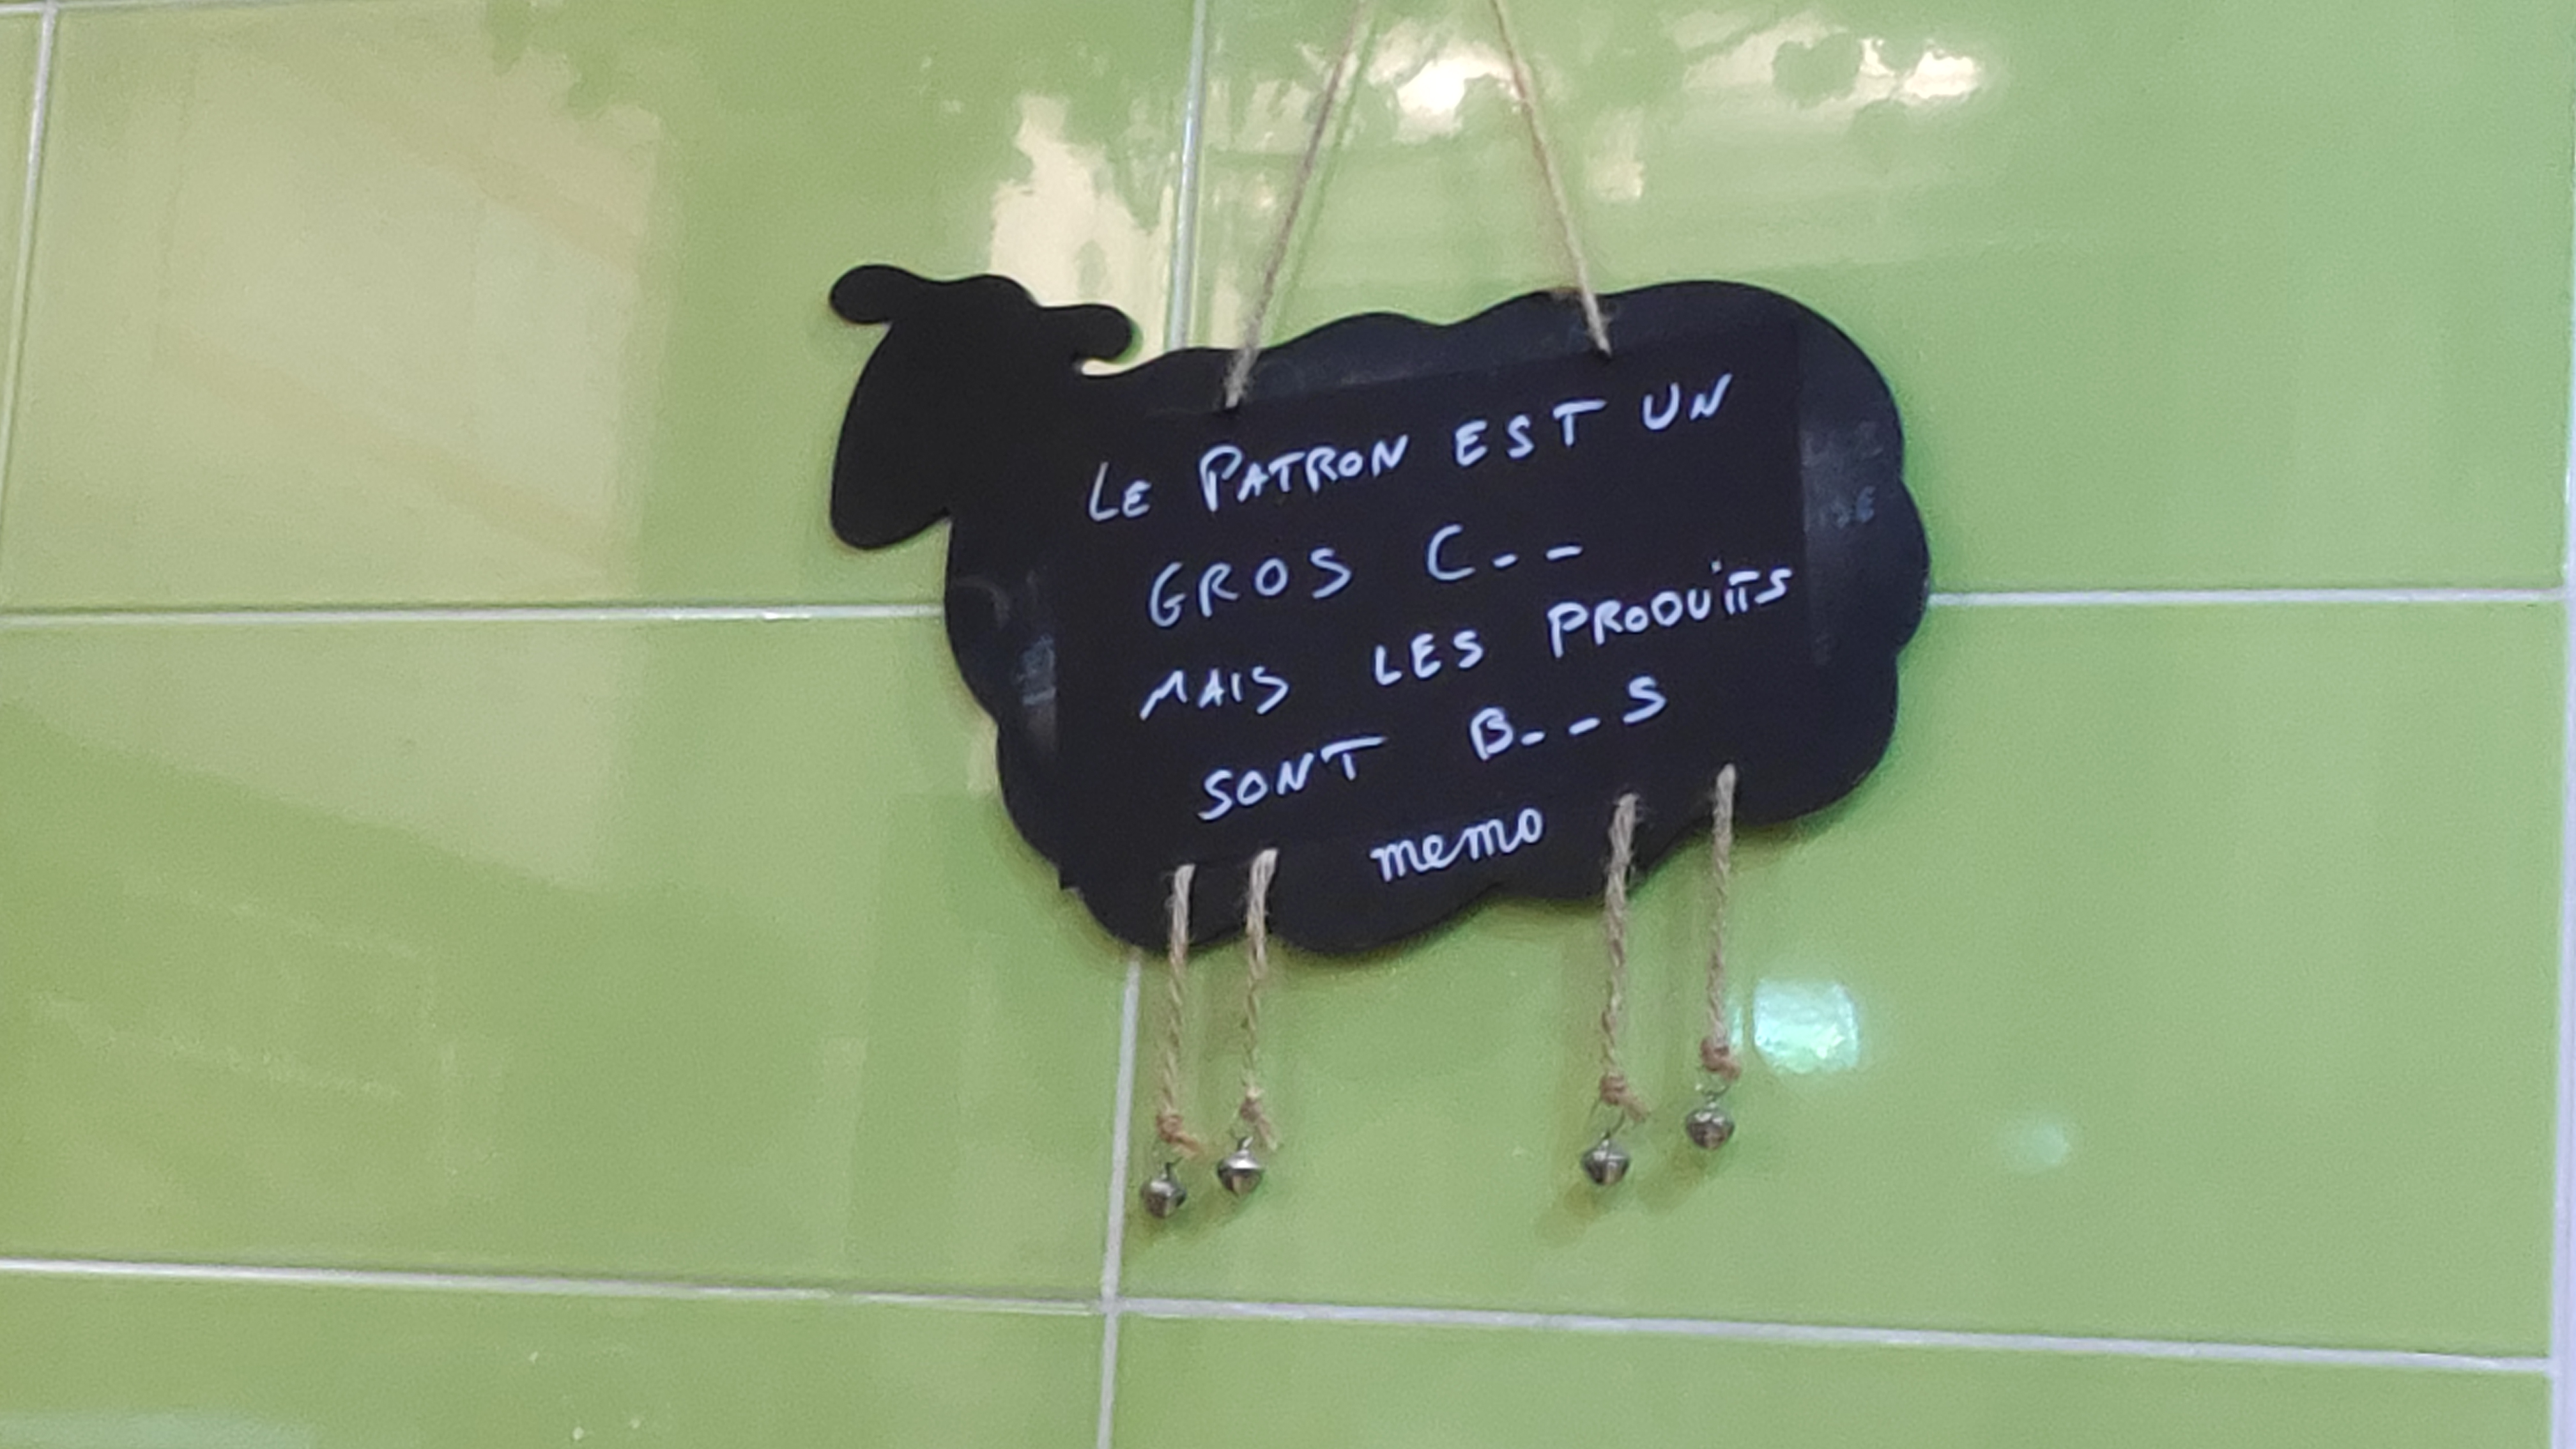 LE PATRON EST UN
GROS C--
MAIS LES PRODUITS
SONT B---S
memo